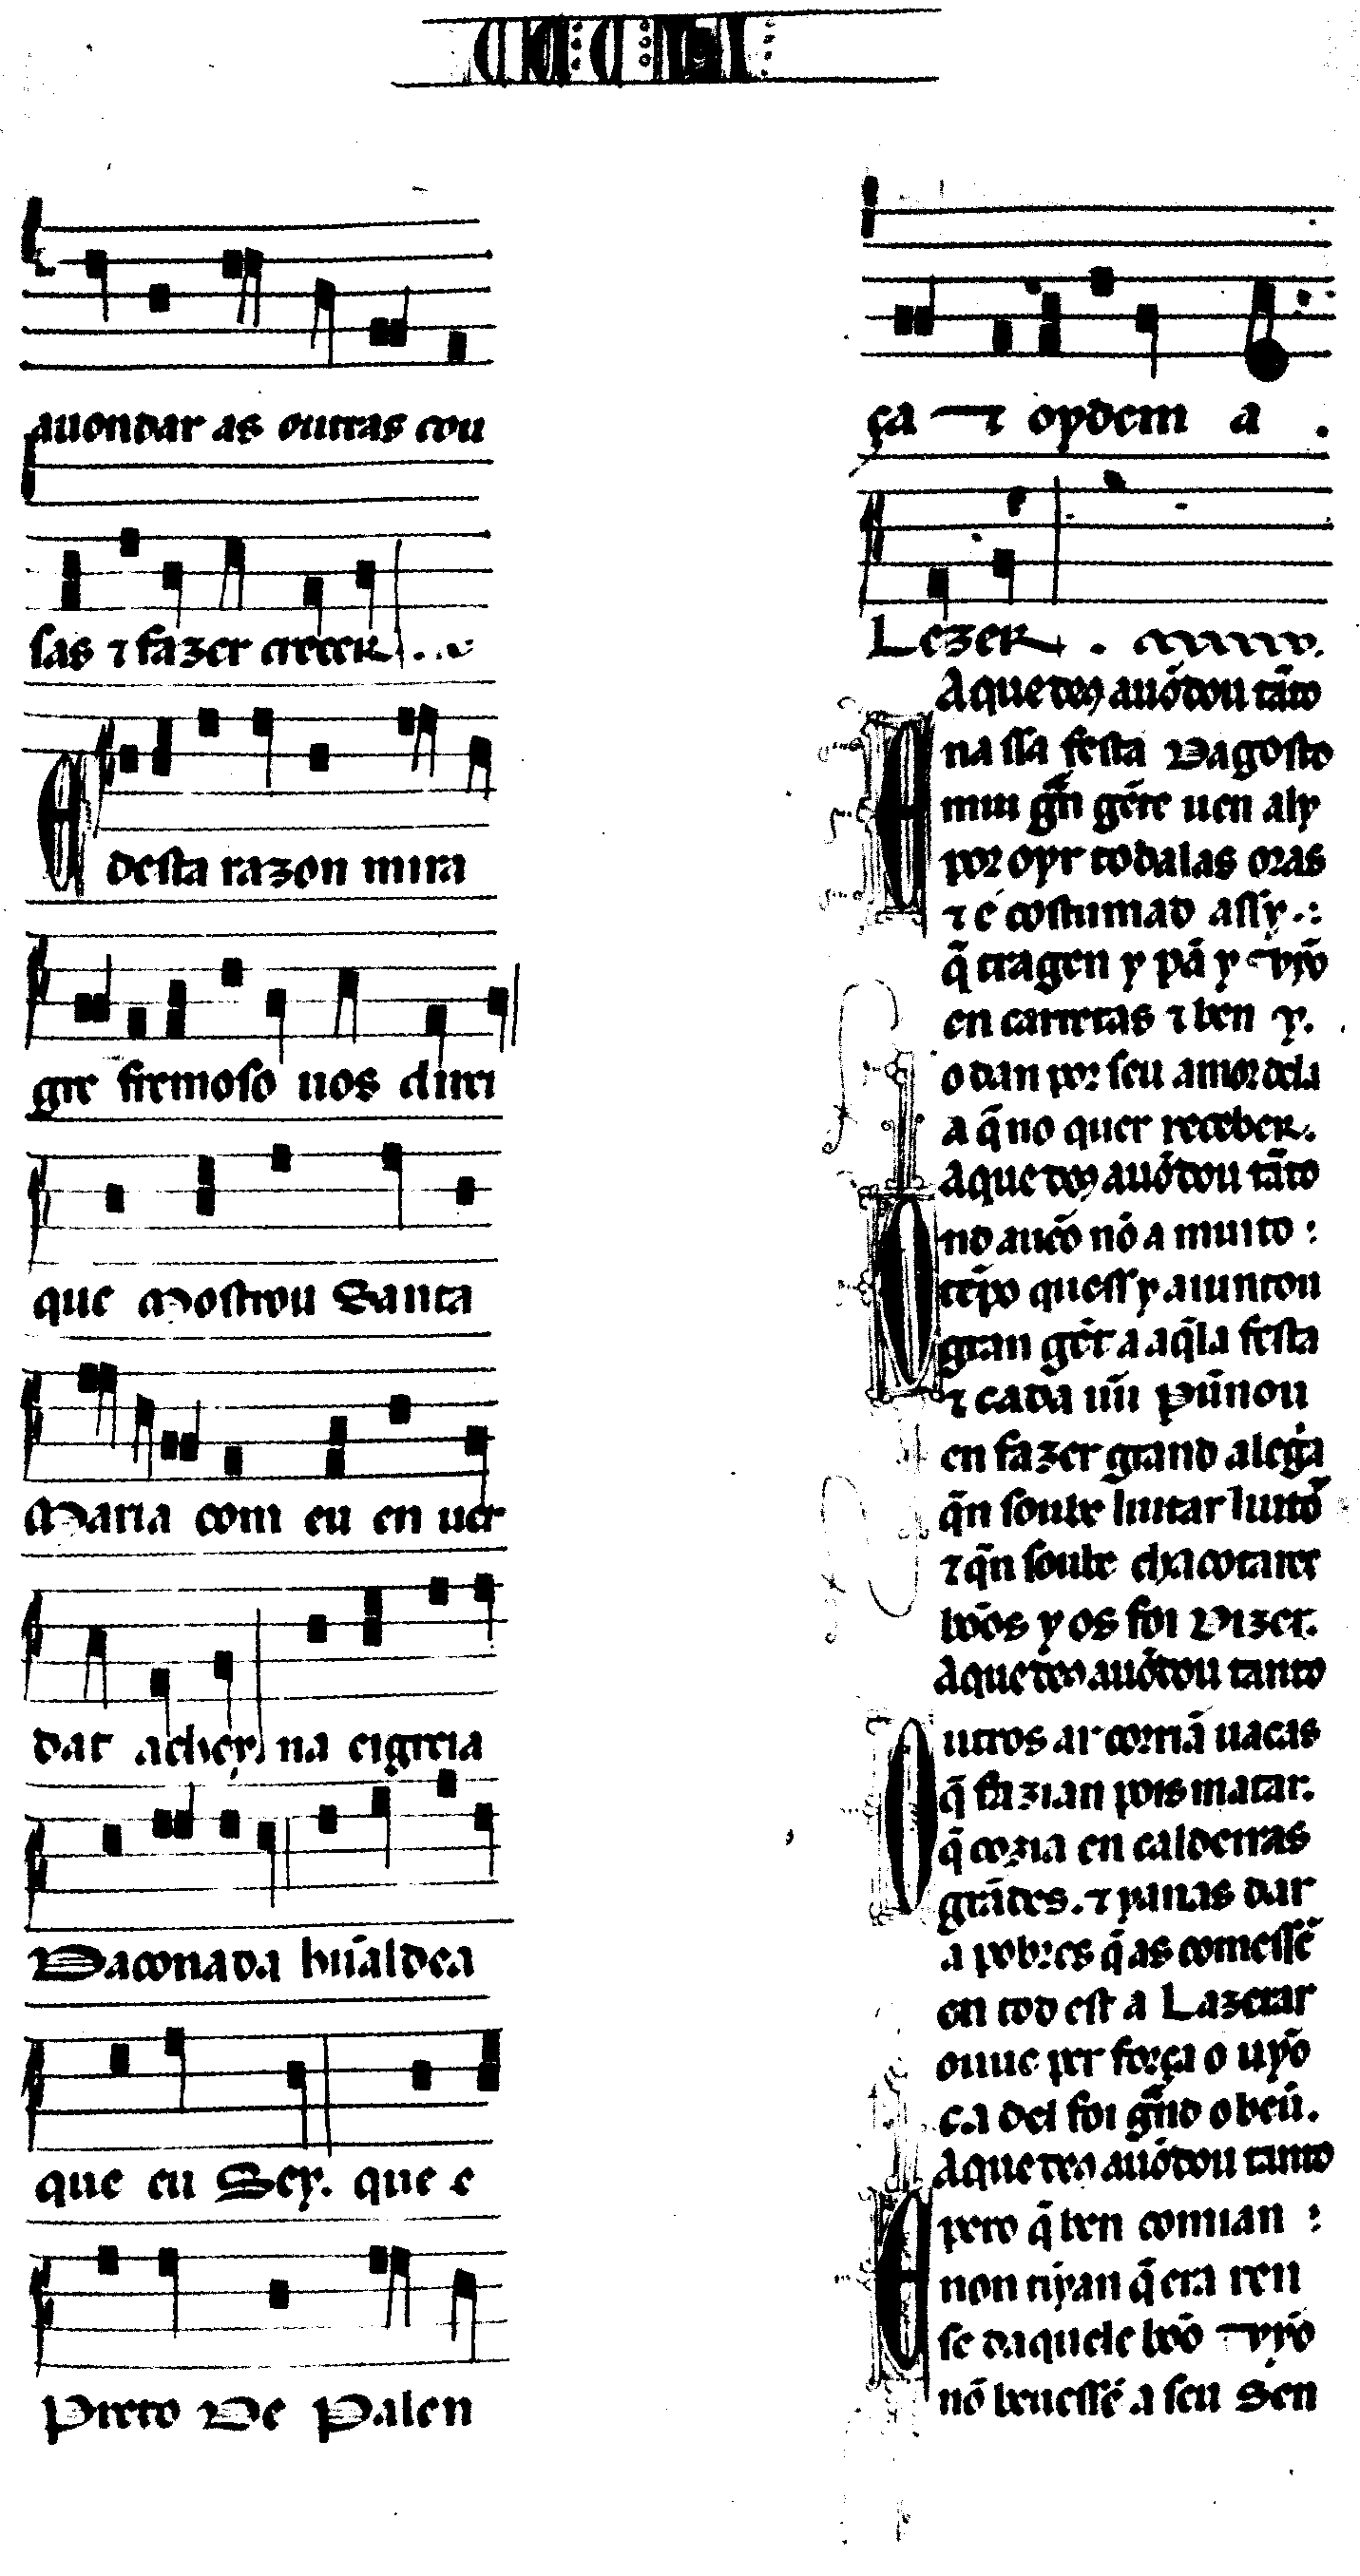 auondar as outras cou
sas ⁊ fazer creceR.
E desta razon mira
gre fremoso uos direi
que Mostrou Santa
Maria com eu en uer
dat achey. na eigreia
Daconada hũ aldea
que eu Sey. que e
Preto De Palen
ça ⁊ oydem a
LezeR.
A que deꝯ auõdou tãto
E na ssa festa Dagosto
mui gñ gẽte uen aly
por oyr todalas oras
⁊ é costumad assy.:
q̃ tragen y pã y ⁊ vỹo
en carretas ⁊ ben y.
o dan por seu amor dela
a q̃ no quer receber.
A que deꝯ auõdou tãto
O nd auẽo nõ a muito :
tẽpo que ss y aiuntou
gran gẽt a aq̃la festa
⁊ cada ũu Pũnou
en fazer grand alegᷓa
q̃n soube luitar luitou
⁊ q̃n soube chacotares
bõos y os foi Dizer.
A que deꝯ auõdou tanto
O utros ar corriã uacas
q̃ fazian pois matar.
q̃ cozia en caldeiras
grãdes. ⁊ panas dar
a pobres q̃ as comessẽ
en tod est a Lazerar
ouue per força o uỹo
ca del foi gᷓnd o beũ.
A que deꝯ auõdou tanto
E pero q̃ ben comian :
non tĩjan q̃ era ren
se daquele bõo ⁊ vỹo
nõ beuessẽ a seu Sen